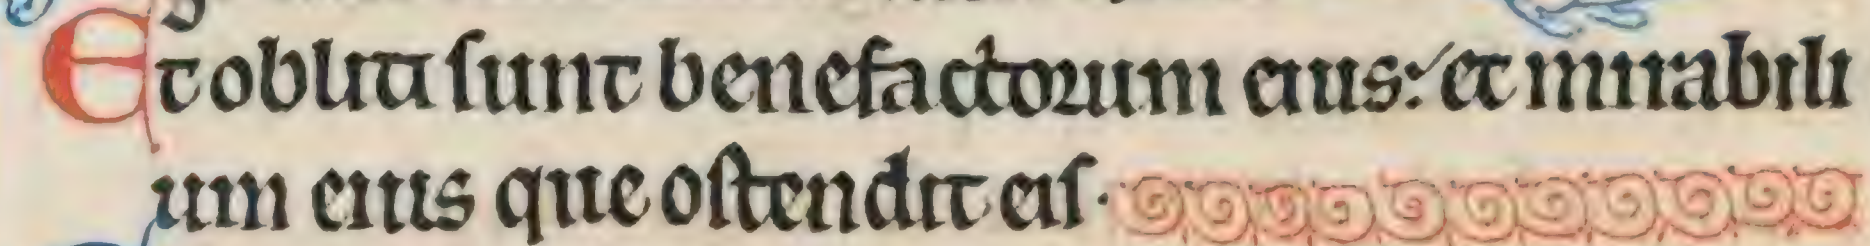 Et obliti sunt benefactorum eius: et mirabili
um eius que ostendit eis.